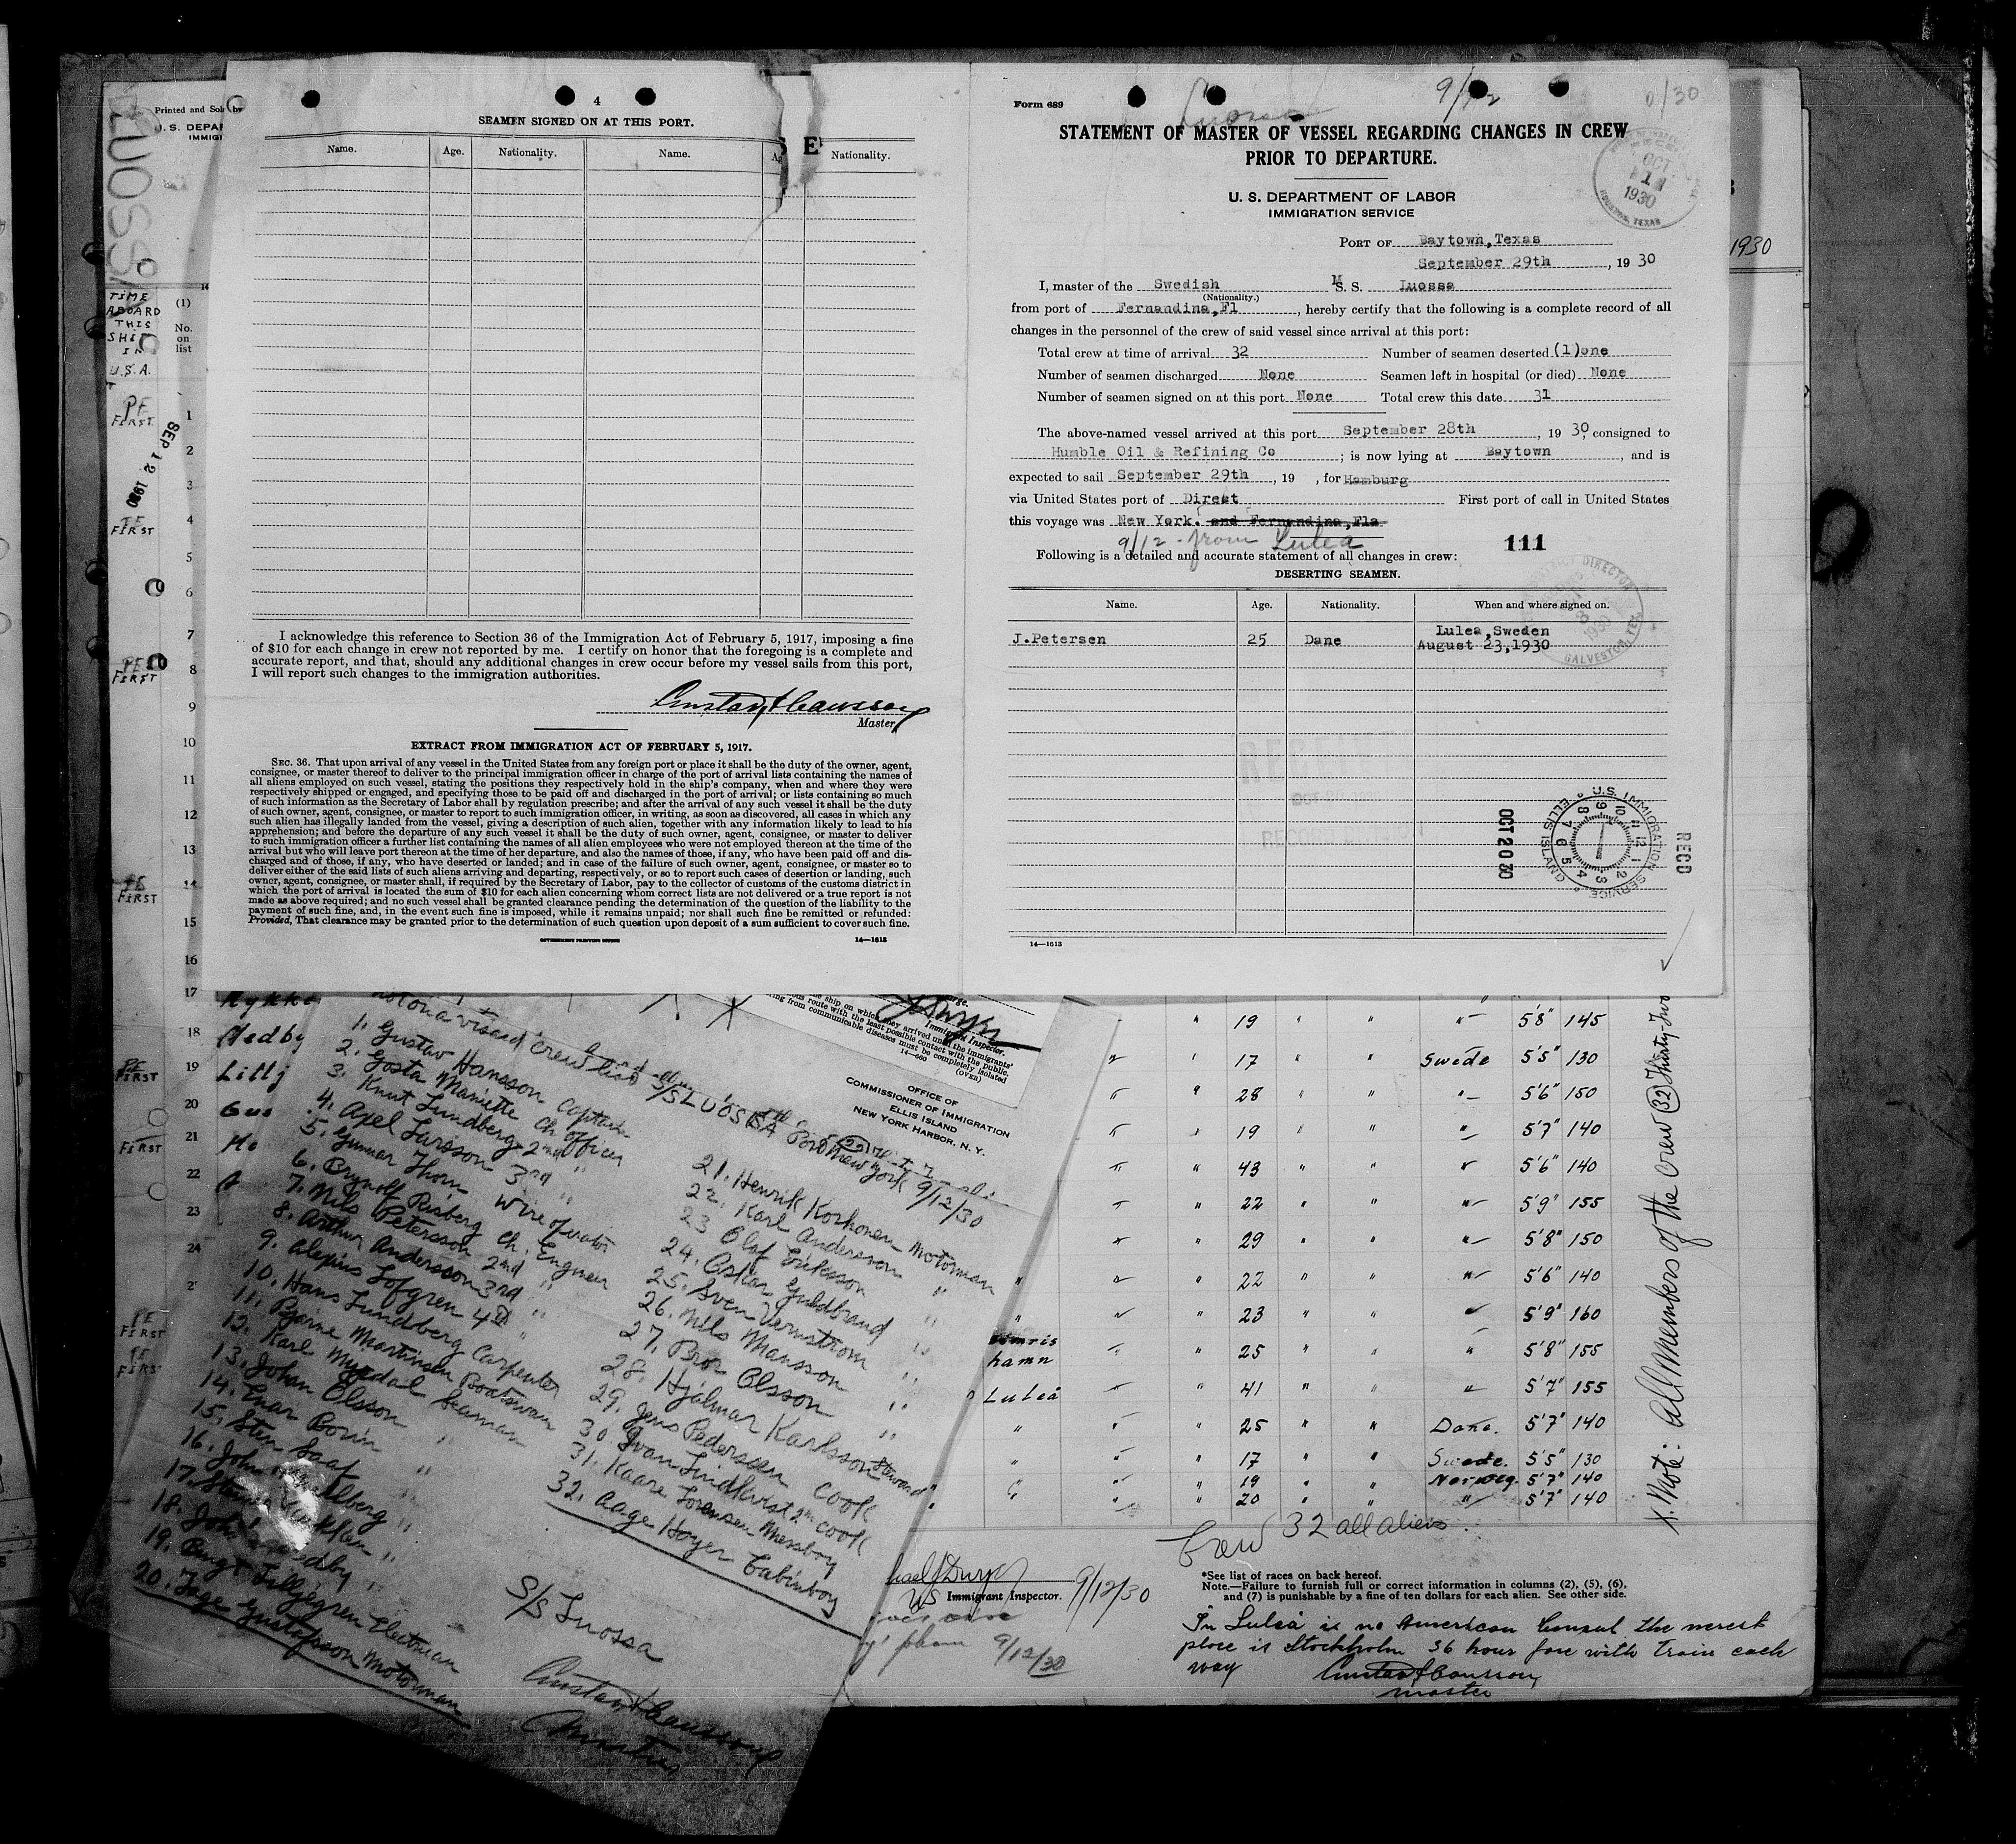 LUOSSA
Printed and Sold by
U. S. DEPAR
IMMIG
TIME
ABOARD
THIS
SHIP
IN
U.S.A.
(1)
No.
on
list
PE
FIRST
SEP 12 1930
1
2
3
4
5
6
7
8
9
10
11
12
13
14
15
16
17
18
19
20
21
22
23
24
4
SEAMEN SIGNED ON AT THIS PORT.
Name. Age. Nationality. Name. Ag E Nationality.
I acknowledge this reference to Section 36 of the Immigration Act of February 5, 1917, imposing a fine
of $10 for each change in crew not reported by me. I certify on honor that the foregoing is a complete and
accurate report, and that, should any additional changes in crew occur before my vessel sails from this port,
I will report such changes to the immigration authorities.
Gustav Hansson
Master
EXTRACT FROM IMMIGRATION ACT OF FEBRUARY 5, 1917.
SEC. 36. That upon arrival of any vessel in the United States from any foreign port or place it shall be the duty of the owner, agent,
consignee, or master thereof to deliver to the principal immigration officer in charge of the port of arrival lists containing the names of
all aliens employed on such vessel, stating the positions they respectively hold in the ship's company, when and where they were
respectively shipped or engaged, and specifying those to be paid off and discharged in the port of arrival; or lists containing so much
of such information as the Secretary of Labor shall by regulation prescribe; and after the arrival of any such vessel it shall be the duty
of such owner, agent, consignee, or master to report to such immigration officer, in writing, as soon as discovered, all cases in which any
such alien has illegally landed from the vessel, giving a description of such alien, together with any information likely to lead to his
apprehension; and before the departure of any such vessel it shall be the duty of such owner, agent, consignee, or master to deliver
to such immigration officer a further list containing the names of all alien employees who were not employed thereon at the time of the
arrival but who will leave port thereon at the time of her departure, and also the names of those, if any, who have been paid off and dis-
charged and of those, if any, who have deserted or landed; and in case of the failure of such owner, agent, consignee, or master so to
deliver either of the said lists of such aliens arriving and departing, respectively, or so to report such cases of desertion or landing, such
owner, agent, consignee, or master shall, if required by the Secretary of Labor, pay to the collector of customs of the customs district in
which the port of arrival is located the sum of $10 for each alien concerning whom correct lists are not delivered or a true report is not
made as above required; and no such vessel shall be granted clearance pending the determination of the question of the liability to the
payment of such fine, and, in the event such fine is imposed, while it remains unpaid; nor shall such fine be remitted or refunded:
Provided, That clearance may be granted prior to the determination of such question upon deposit of a sum sufficient to cover such fine.
GOVERNMENT PRINTING OFFICE 14—1613
Form 689
Luossa 9/12 0/30
STATEMENT OF MASTER OF VESSEL REGARDING CHANGES IN CREW
PRIOR TO DEPARTURE.
OCT 1 1930
U. S. DEPARTMENT OF LABOR
IMMIGRATION SERVICE
PORT OF Baytown,Texas
September 29th , 19 30
1930
I, master of the Swedish M S. S. Luossa
(Nationality.)
from port of Fernandina,Fl , hereby certify that the following is a complete record of all
changes in the personnel of the crew of said vessel since arrival at this port:
Total crew at time of arrival 32 Number of seamen deserted (1)one
Number of seamen discharged None Seamen left in hospital (or died) None
Number of seamen signed on at this port None Total crew this date 31
The above-named vessel arrived at this port September 28th , 19 30, consigned to
Humble Oil & Refining Co ; is now lying at Baytown , and is
expected to sail September 29th , 19 , for Hamburg
via United States port of Direct First port of call in United States
this voyage was New York. and Fernandina,Fla
9/12 - from Lulea
Following is a detailed and accurate statement of all changes in crew: 111
DESERTING SEAMEN.
Name. Age. Nationality. When and where signed on.
J.Petersen 25 Dane Lulea,Sweden
August 23,1930
DISTRICT DIRECTOR
GALVESTON, TEX
OCT 20 30
U.S. IMMIGRATION SERVICE ELLIS ISLAND
RECD
14—1613
Hedby
Lillj
Gus
1. Gustav Hansson Captain
2. Gosta Maniette Ch. officer
3. Knut Lundberg 2nd "
4. Axel Larsson 3rd "
5. Gunnar Thorn Wireoperator
6. Brynolf Risberg Ch. Engineer
7. Nils Petersson 2nd "
8. Arthur Andersson 3rd "
9. Alexius Lofgren 4th "
10. Hans Lundberg Carpenter
11. Bjarne Martinsen Boatswain
12. Karl Myrdal Seaman
13. Johan Olsson "
14. Enar Borin
15. Sten Saaf "
16. John
17.
18. Joh edby "
19. Bengt Lilljegren Electrician
20. Tage Gustafsson Motorman
crew list S/S LUOSSA Port New York 9/12/30
21. Henrik Korhonen Motorman
22. Karl Andersson "
23 Olof Eriksson "
24. Oskar Guldbrand "
25. Sven Vernstrom "
26. Nils Mansson "
27. Bror Olsson "
28. Hjalmar Karlsson Steward
29. Jens Pedersen Cook
30 Ivan Lindkvist 2nd cook
31. Kaare Torensen Messboy
32. Aage Hoyer Cabinboy
S/S Luossa
Gustav Hansson
Master
Immigrant Inspector.
the ship on which they arrived until the immigrants'
route with the least possible contact with the public.
ing from communicable diseases must be completely isolated
14—660 (OVER)
OFFICE OF
COMMISSIONER OF IMMIGRATION
ELLIS ISLAND
NEW YORK HARBOR, N. Y.
" 19 " " " 5'8" 145
" 17 " " Swede 5'5" 130
" 28 " " " 5'6" 150
" 19 " " " 5'7" 140
" 43 " " " 5'6" 140
" 22 " " " 5'9" 155
" 29 " " " 5'8" 150
" 22 " " " 5'6" 140
" 23 " " " 5'9" 160
hamn " 25 " " " 5'8" 155
Luleå " 41 " " " 5'7" 155
" " 25 " " Dane. 5'7" 140
" " 17 " " Swede. 5'5" 130
" 19 " " Norweg. 5'7" 140
" 20 " " " 5'7" 140
X. Note: All members of the crew (32) Thirty-Two
Crew 32 all aliens.
US Immigrant Inspector. 9/12/30
9/12/30
*See list of races on back hereof.
Note.—Failure to furnish full or correct information in columns (2), (5), (6),
and (7) is punishable by a fine of ten dollars for each alien. See other side.
In Luleå is no American Consul the nerest
place is Stockholm 36 hour fore with train each
way Gustav Hansson
master